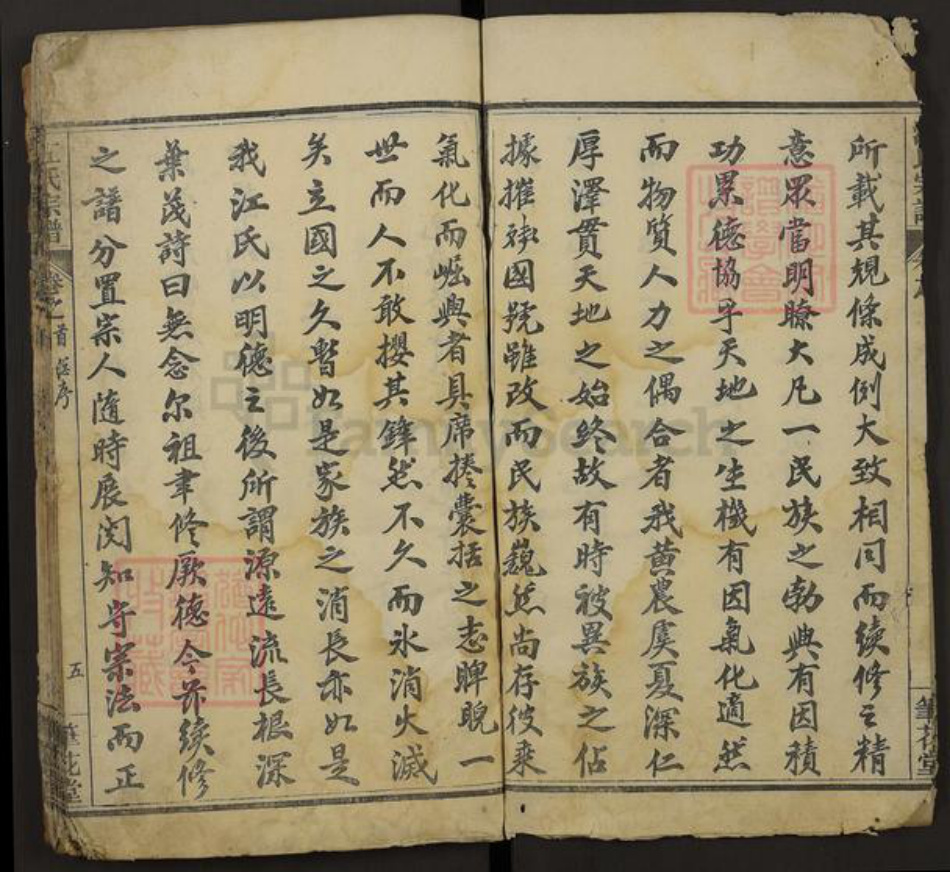 所載其規條成例大致相同而續修之精
意眾當明瞭大凡一民族之勃興有因積
功累德協乎天地之生機有因氣化適然
而物質人力之偶合者我黃農虞夏深仁
厚澤貫天地之始終故有時被異族之佔
據摧殘國號雖改而民族巍然尚存彼乘
氣化而崛興者具席捲囊括之志睥睨一
世而人不敢攖其鋒然不久而氷消火滅
矣立國之久暫如是家族之消長亦如是
我江氏以明德之後所謂源遠流長根深
葉茂詩曰無念尔祖聿修厥德今茲續修
之譜分置宗人隨時展閱知守宗法而正
江氏宗譜
卷之首
五
筆花堂
FamilySearch